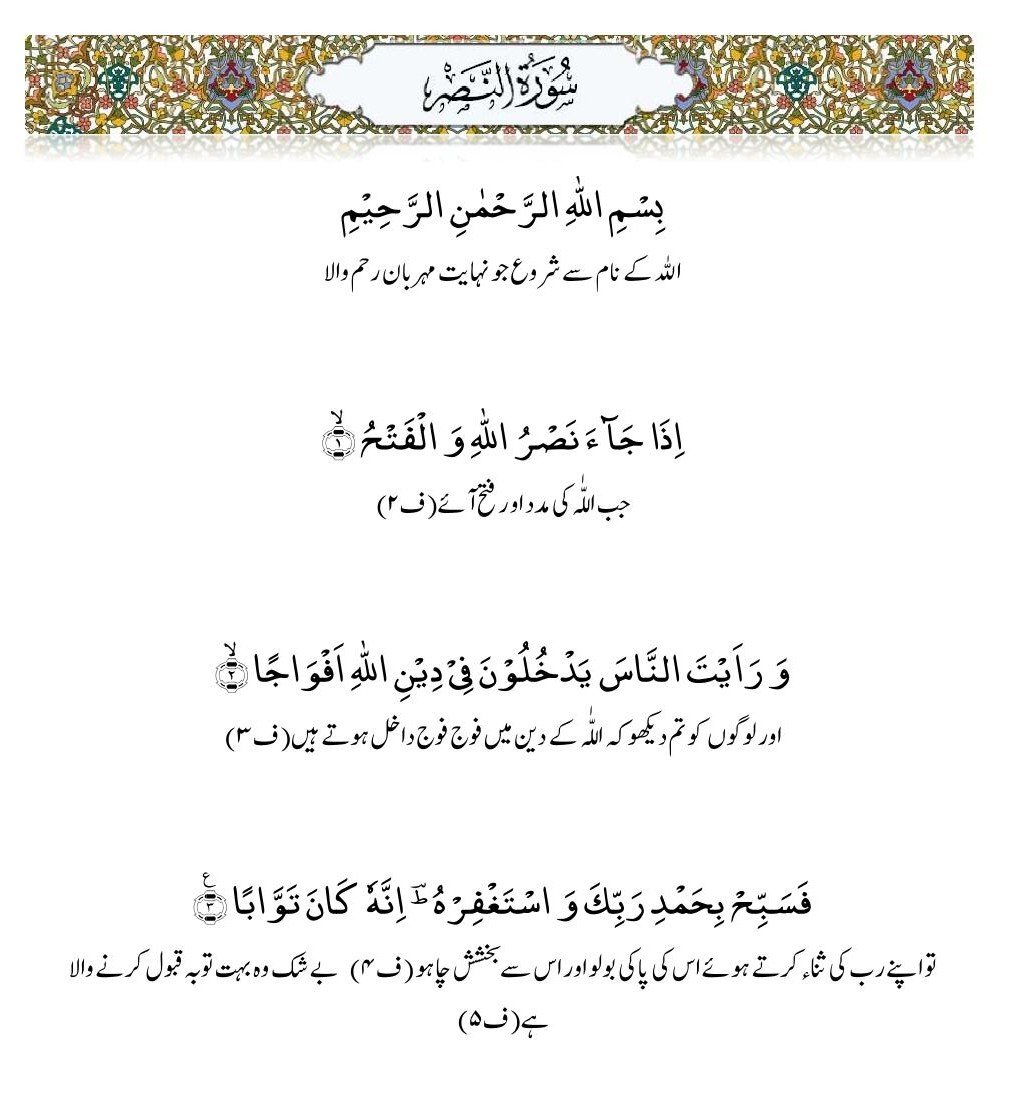 سُوْرَةُ النَّصْر
بِسْمِ اللّٰهِ الرَّحْمٰنِ الرَّحِیْمِ
اللہ کے نام سے شروع جو نہایت مہربان رحم والا
اِذَا جَآءَ نَصْرُ اللّٰهِ وَ الْفَتْحُۙ۝۱
جب اللّٰہ کی مدد اور فتح آئے(ف۲)
وَ رَاَیْتَ النَّاسَ یَدْخُلُوْنَ فِیْ دِیْنِ اللّٰهِ اَفْوَاجًاۙ۝۲
اور لوگوں کو تم دیکھو کہ اللّٰہ کے دین میں فوج فوج داخل ہوتے ہیں(ف۳)
فَسَبِّحْ بِحَمْدِ رَبِّكَ وَ اسْتَغْفِرْهُ ﳳ اِنَّهٗ كَانَ تَوَّابًا۠۝۳
تو اپنے رب کی ثناء کرتے ہوئے اس کی پاکی بولو اور اس سے بخشش چاہو (ف۴) بے شک وہ بہت توبہ قبول کرنے والا
ہے(ف۵)